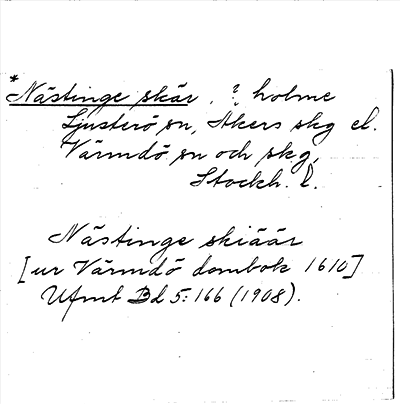 *Nästinge skär, ? holme
Ljusterö sn, Åkers skg el.
Värmdö sn och skg,
Stockh. l.
Nästinge skiäär
[ur Värmdö dombok 1610]
Ufmt Bd 5:166 (1908).